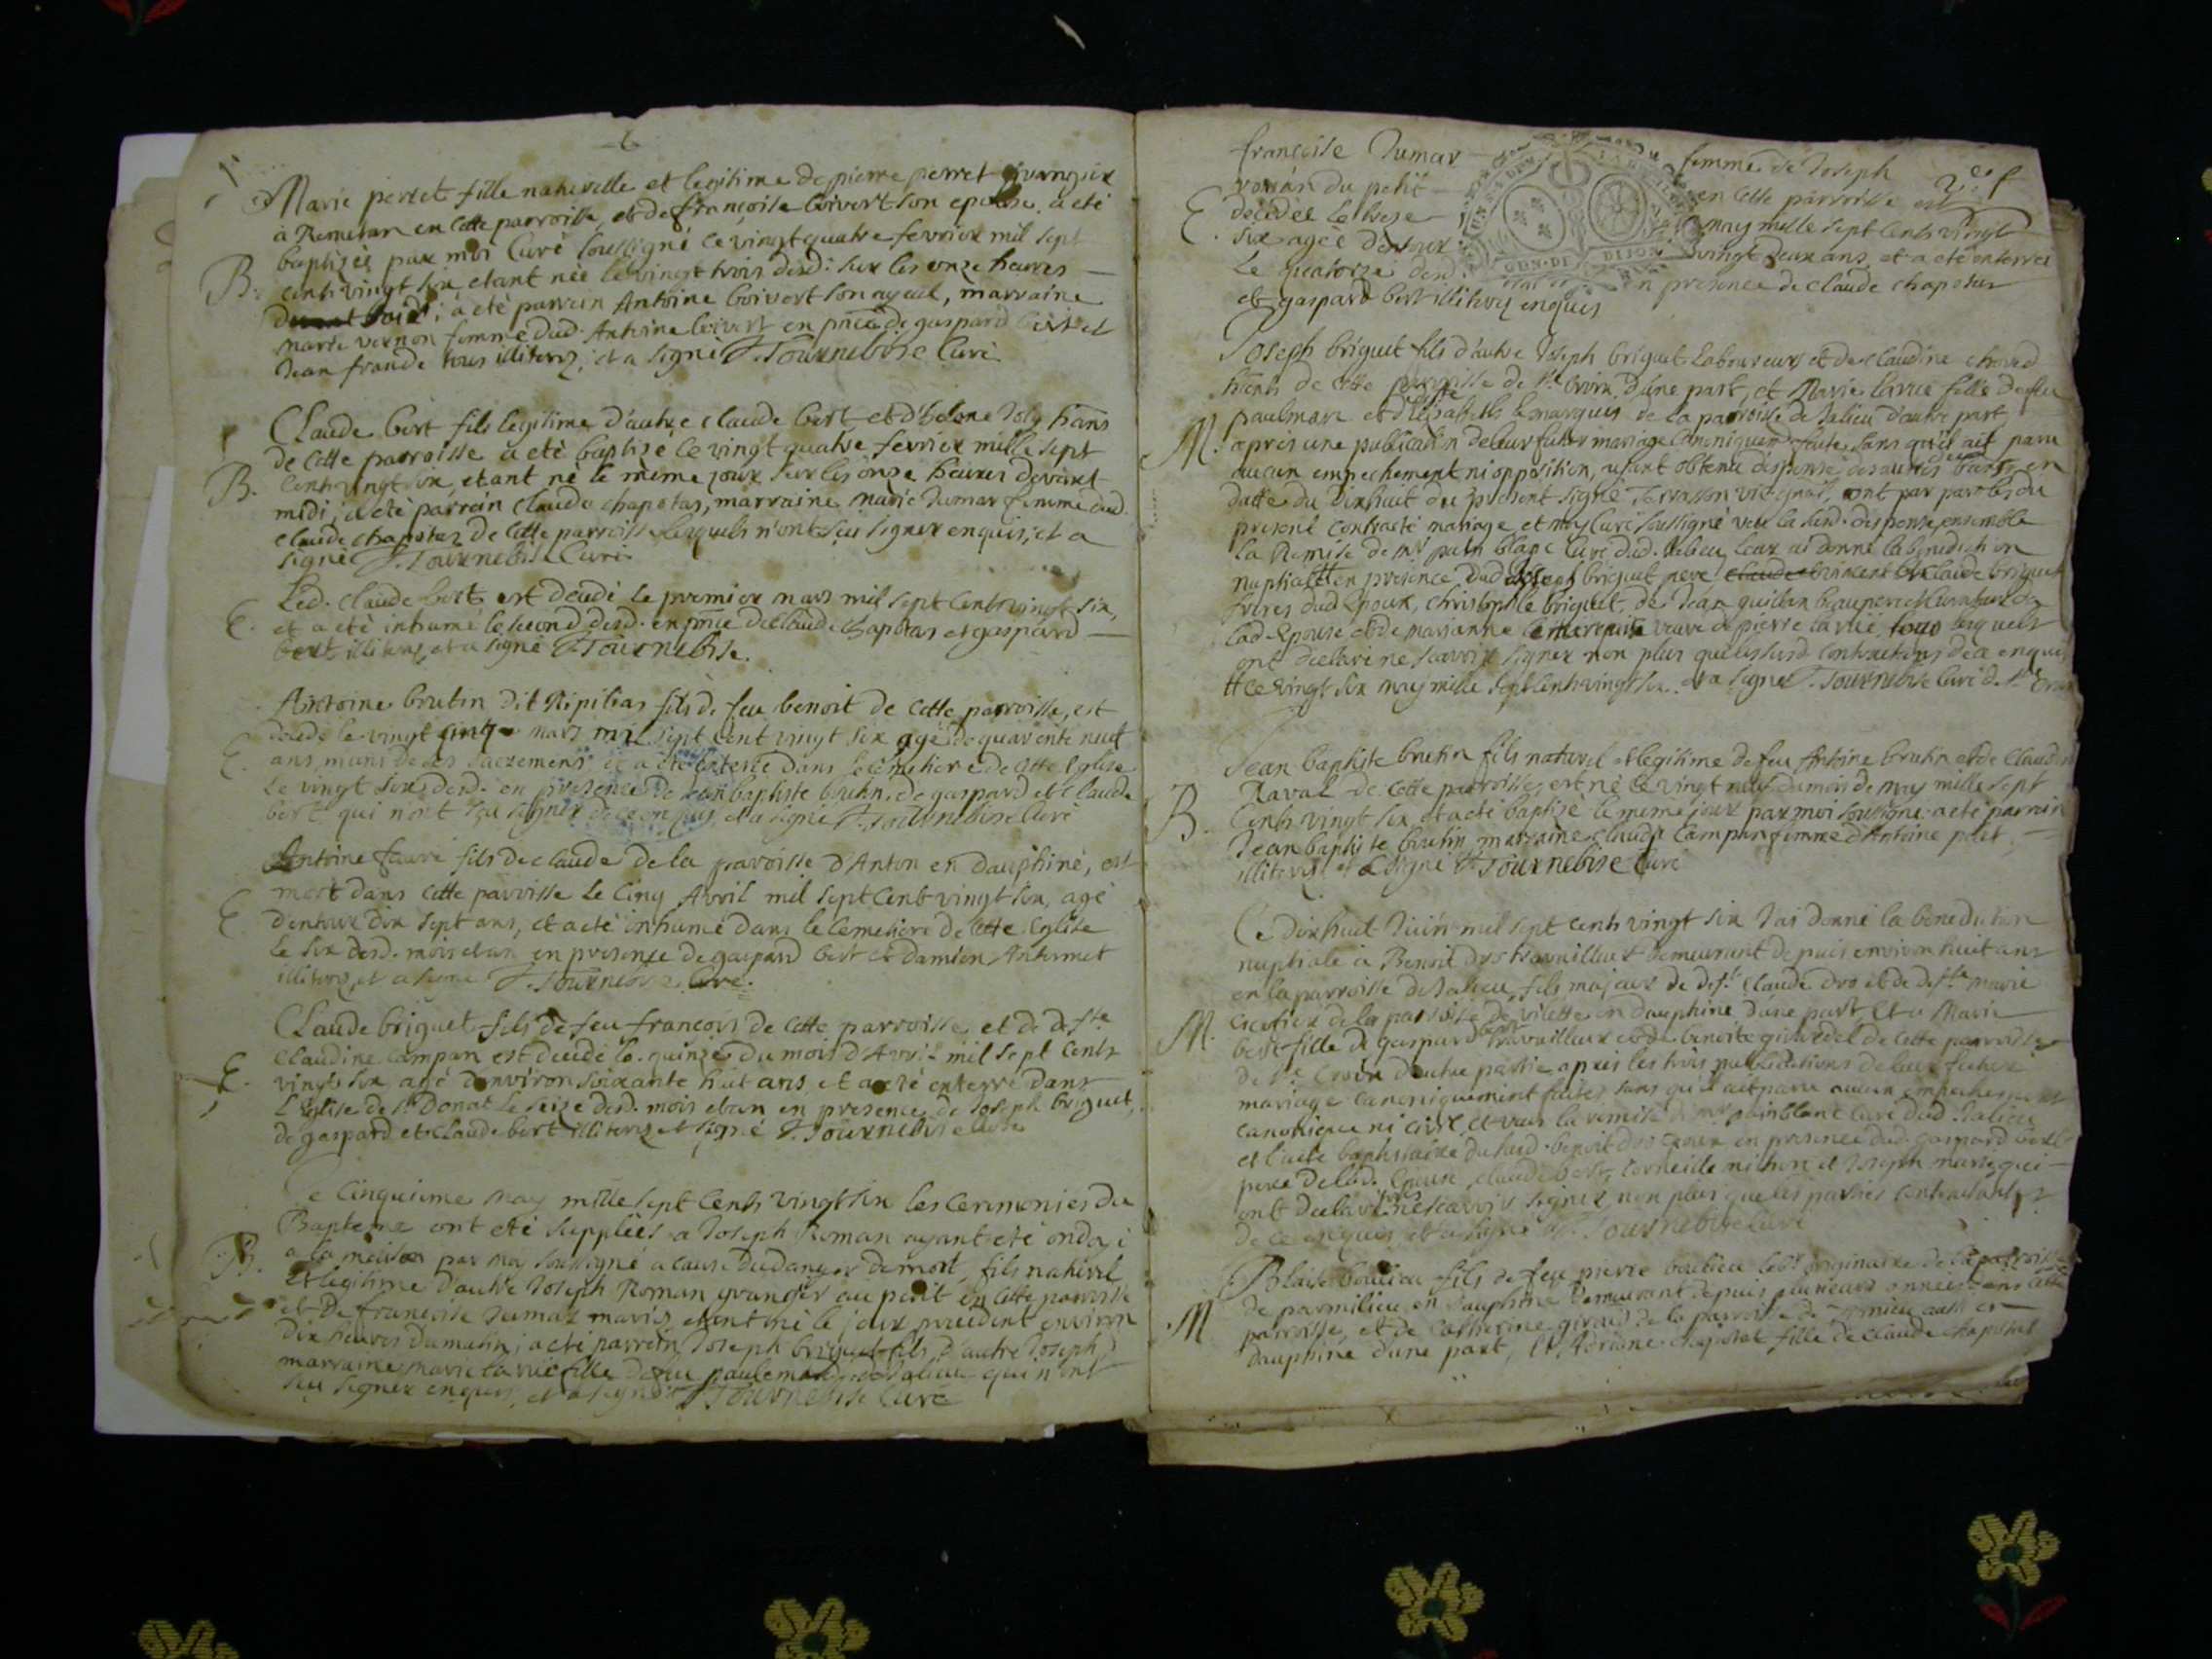 Marie perret fille naturelle et legitime de pierre perret granger
à Remeran en cette parroisse, et de françoise boivert son epouse, a eté
baptizée par moi Curé soussigné ce vingt quatre fevrier mil sept
B. cents vingt six, etant née le vingt trois desd: sur les onze heures
du soir; a eté parrain Antoine boivert son ayeul, marraine
marie vernon femme dud. Antoine boivert en pnce de gaspard bert et
Jean frande tous illiterez, et a signé J. Tournebise Curé
Claude bert fils legitime d'autre Claude bert et d'helene Joly hans
de cette parroisse a eté baptizé ce vingt quatre fevrier mille sept
B. cents vingt six, etant né le même jour sur les onze heures devant
midi, a eté parrain claude chapotas, marraine marie Dumar femme dud.
claude chapotas de cette parroisse lesquels n'ont sçu signer enquis; et a
signé J. Tournebise Curé
Led. Claude bert est decedé le premier mars mil sept cents vingt six,
E. et a eté inhumé le second desd. en pnce de claude chapotas et gaspard
bert illiterez, et a signé J. Tournebise.
Antoine brutin dit Ripilias fils de feu benoit de cette parroisse, est
decedé le vingt cinq mars mil sept cent vingt six agé de quarente neuf
E. ans, muni de ses sacremens et a eté enterré dans le cemetiere de cette Eglise
le vingt six desd. en presence de Jean baptiste brutin, de gaspard et Claude
bert qui n'ont sçu signer de ce enquis, et a signé J. Tournebise Curé
Antoine favre fils de claude de la parroisse d'Anton en dauphiné, est
mort dans cette parroisse le cinq Avril mil sept cent vingt six, agé
E. dentour dix sept ans, et a eté inhumé dans le Cemetiere de cette Eglise
le six desd. mois et an en presence de gaspard bert et damien Antermet
illiterez, et a signé J. Tournebise Curé.
Claude briguet fils de feu francois de cette parroisse, et de deffte
Claudine campan est decedé le quinze du mois d'Avril mil sept cents
E. vingt six, agé d'environ soixante huit ans, et a eté enterré dans
l'eglise de St Donat le seize desd. mois et an en presence de Joseph briguet,
de gaspard et claude bert illiterez et signé J. Tournebise Curé
Le cinquieme may mille sept cents vingt six les ceremonies du
Bapteme ont eté suppliées a Joseph Roman ayant eté ondoyé
B. a la maison par moy soussigné a cause du danger de mort, fils naturel
et legitime d'autre Joseph Roman granger au petit en cette parroisse
et de françoise Dumar mariez, etant né le jour precedent environ
dix heures du matin; a eté parrein Joseph briguet fils d'autre Joseph,
marraine marie larue fille de feu paulemard de Jalieu qui n'ont
sçu signer enquis, et a signé J. Tournebise Curé
françoise Dumar femme de Joseph
roman du petit en cette parroisse est
E. decedée le treze may mille sept cents vingt
six agée dentour vingt deux ans, et a eté enterrée
le quatorze desd. en presence de claude chapotas
et gaspard bert illiterez enquis
GEN. DE DIJON
Joseph briguet fils d'autre Joseph briguet Laboureurs et de claudine choud
hans de cette parroisse de Ste Croix d'une part, et Marie larue fille de feu
paulmard et d'Elisabeth le marquis de la parroisse de Jalieu d'autre part
M. apres une publication de leur futur mariage canoniquemt faite, sans qu'il ait paru
aucun empechement ni opposition, ayant obtenu dispense des autres bans en
datte du dixhuit du present signé Terrasson vic gnal, ont par paroles du
present contracté mariage, et moy curé soussigné veu la susd. dispense, ensemble
la Remise de Mr pain blanc curé dud. Jalieu, leur ai donné la benediction
nuptiale en presence dud Joseph briguet pere, claude briguet
freres dud Epoux, christophle briguet, de Jean quillan beaupere et curateur de
lad. Epouse et de marianne veuve de pierre larue, tous lesquels
ont declaré ne sçavoir signer non plus que lessusd contractans de ce enquis
ce vingt six may mille sept cents vingt six. et a signé J. Tournebise curé de Ste Croix
Jean baptiste brutin fils naturel et legitime de feu Antoine brutin et de Claudine
Ravat de cette parroisse, est né le vingt neuf du mois de may mille sept
B. cents vingt six, et a eté baptizé le meme jour par moi soussigné. a eté parrain
Jean baptiste brutin, marraine claudine Campan femme d'Antoine pilet
illiterez et a signé J. Tournebise Curé
Ce dixhuit Juin mil sept cents vingt six J'ai donné la benediction
nuptiale à Benoit dro travailleur demeurant depuis environ huit ans
en la parroisse de Jalieu, fils majeur de defft Claude dro et de deffte marie
M. de la parroisse de vilette en dauphiné d'une part, et a Marie
bert fille de gaspard bert travailleur et de benoite girardet de cette parroisse
de Ste Croix d'autre partie apres les trois publications de leur futur
mariage canoniquement faites, sans qu'il ait paru aucun empechement
canonique ni civil, et veu la remise de mr painblanc curé dud. Jalieu
et l'acte baptistaire dususd. benoit dro epoux en presence dud. gaspard bert
pere de lad. Epouse, claude bert, et Joseph marie qui
ont declaré ne sçavoir signer non plus que les parties contractantes
de ce enquis, et a signé J. Tournebise curé
Blaise boulieu fils de feu pierre boulieu originaire de la parroisse
de parmilieu en dauphiné demeurant depuis plusieurs années en cette
M. parroisse, et de catherine giraud de la parroisse de aussi en
dauphiné d'une part, et Adriane chapotat fille de claude chapotat